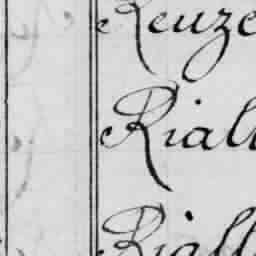 Reuze
Riall
Riall